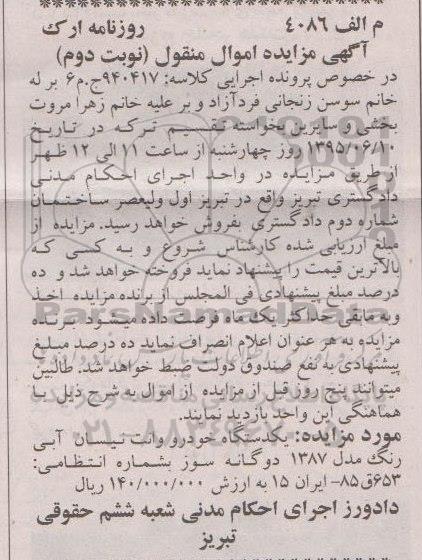 م الف ۴۰۸۶ روزنامه ارک
آگهی مزایده اموال منقول (نوبت دوم)
در خصوص پرونده اجرایی کلاسه: ۹۴۰۴۱۷ج.م۶ بر له
خانم سوسن زنجانی فردآزاد و بر علیه خانم زهرا مروت
بخشی و سایرین بخواسته تقسیم ترکه در تاریخ
۱۳۹۵/۰۶/۱۰ روز چهارشنبه از ساعت ۱۱ الی ۱۲ ظهر
از طریق مزایده در واحد اجرای احکام مدنی
دادگستری تبریز واقع در تبریز اول ولیعصر ساختمان
شماره دوم دادگستری بفروش خواهد رسید. مزایده از
مبلغ ارزیابی شده کارشناس شروع و به کسی که
بالاترین قیمت را پیشنهاد نماید فروخته خواهد شد و ده
درصد مبلغ پیشنهادی فی المجلس از برنده مزایده اخذ
و به مابقی حداکثر یک ماه فرصت داده میشود برنده
مزایده به هر عنوان اعلام انصراف نماید ده درصد مبلغ
پیشنهادی به نفع صندوق دولت ضبط خواهد شد. طالبین
میتوانند پنج روز قبل از مزایده از اموال به شرح ذیل با
هماهنگی این واحد بازدید نمایند.
مورد مزایده: یکدستگاه خودرو وانت نیسان آبی
رنگ مدل ۱۳۸۷ دوگانه سوز بشماره انتظامی:
۶۵۳ق۸۵- ایران ۱۵ به ارزش ۱۴۰/۰۰۰/۰۰۰ ریال
دادورز اجرای احکام مدنی شعبه ششم حقوقی
تبریز
ParsNamadData
۰۲۱-۸۸۳۴۹۶۷۰